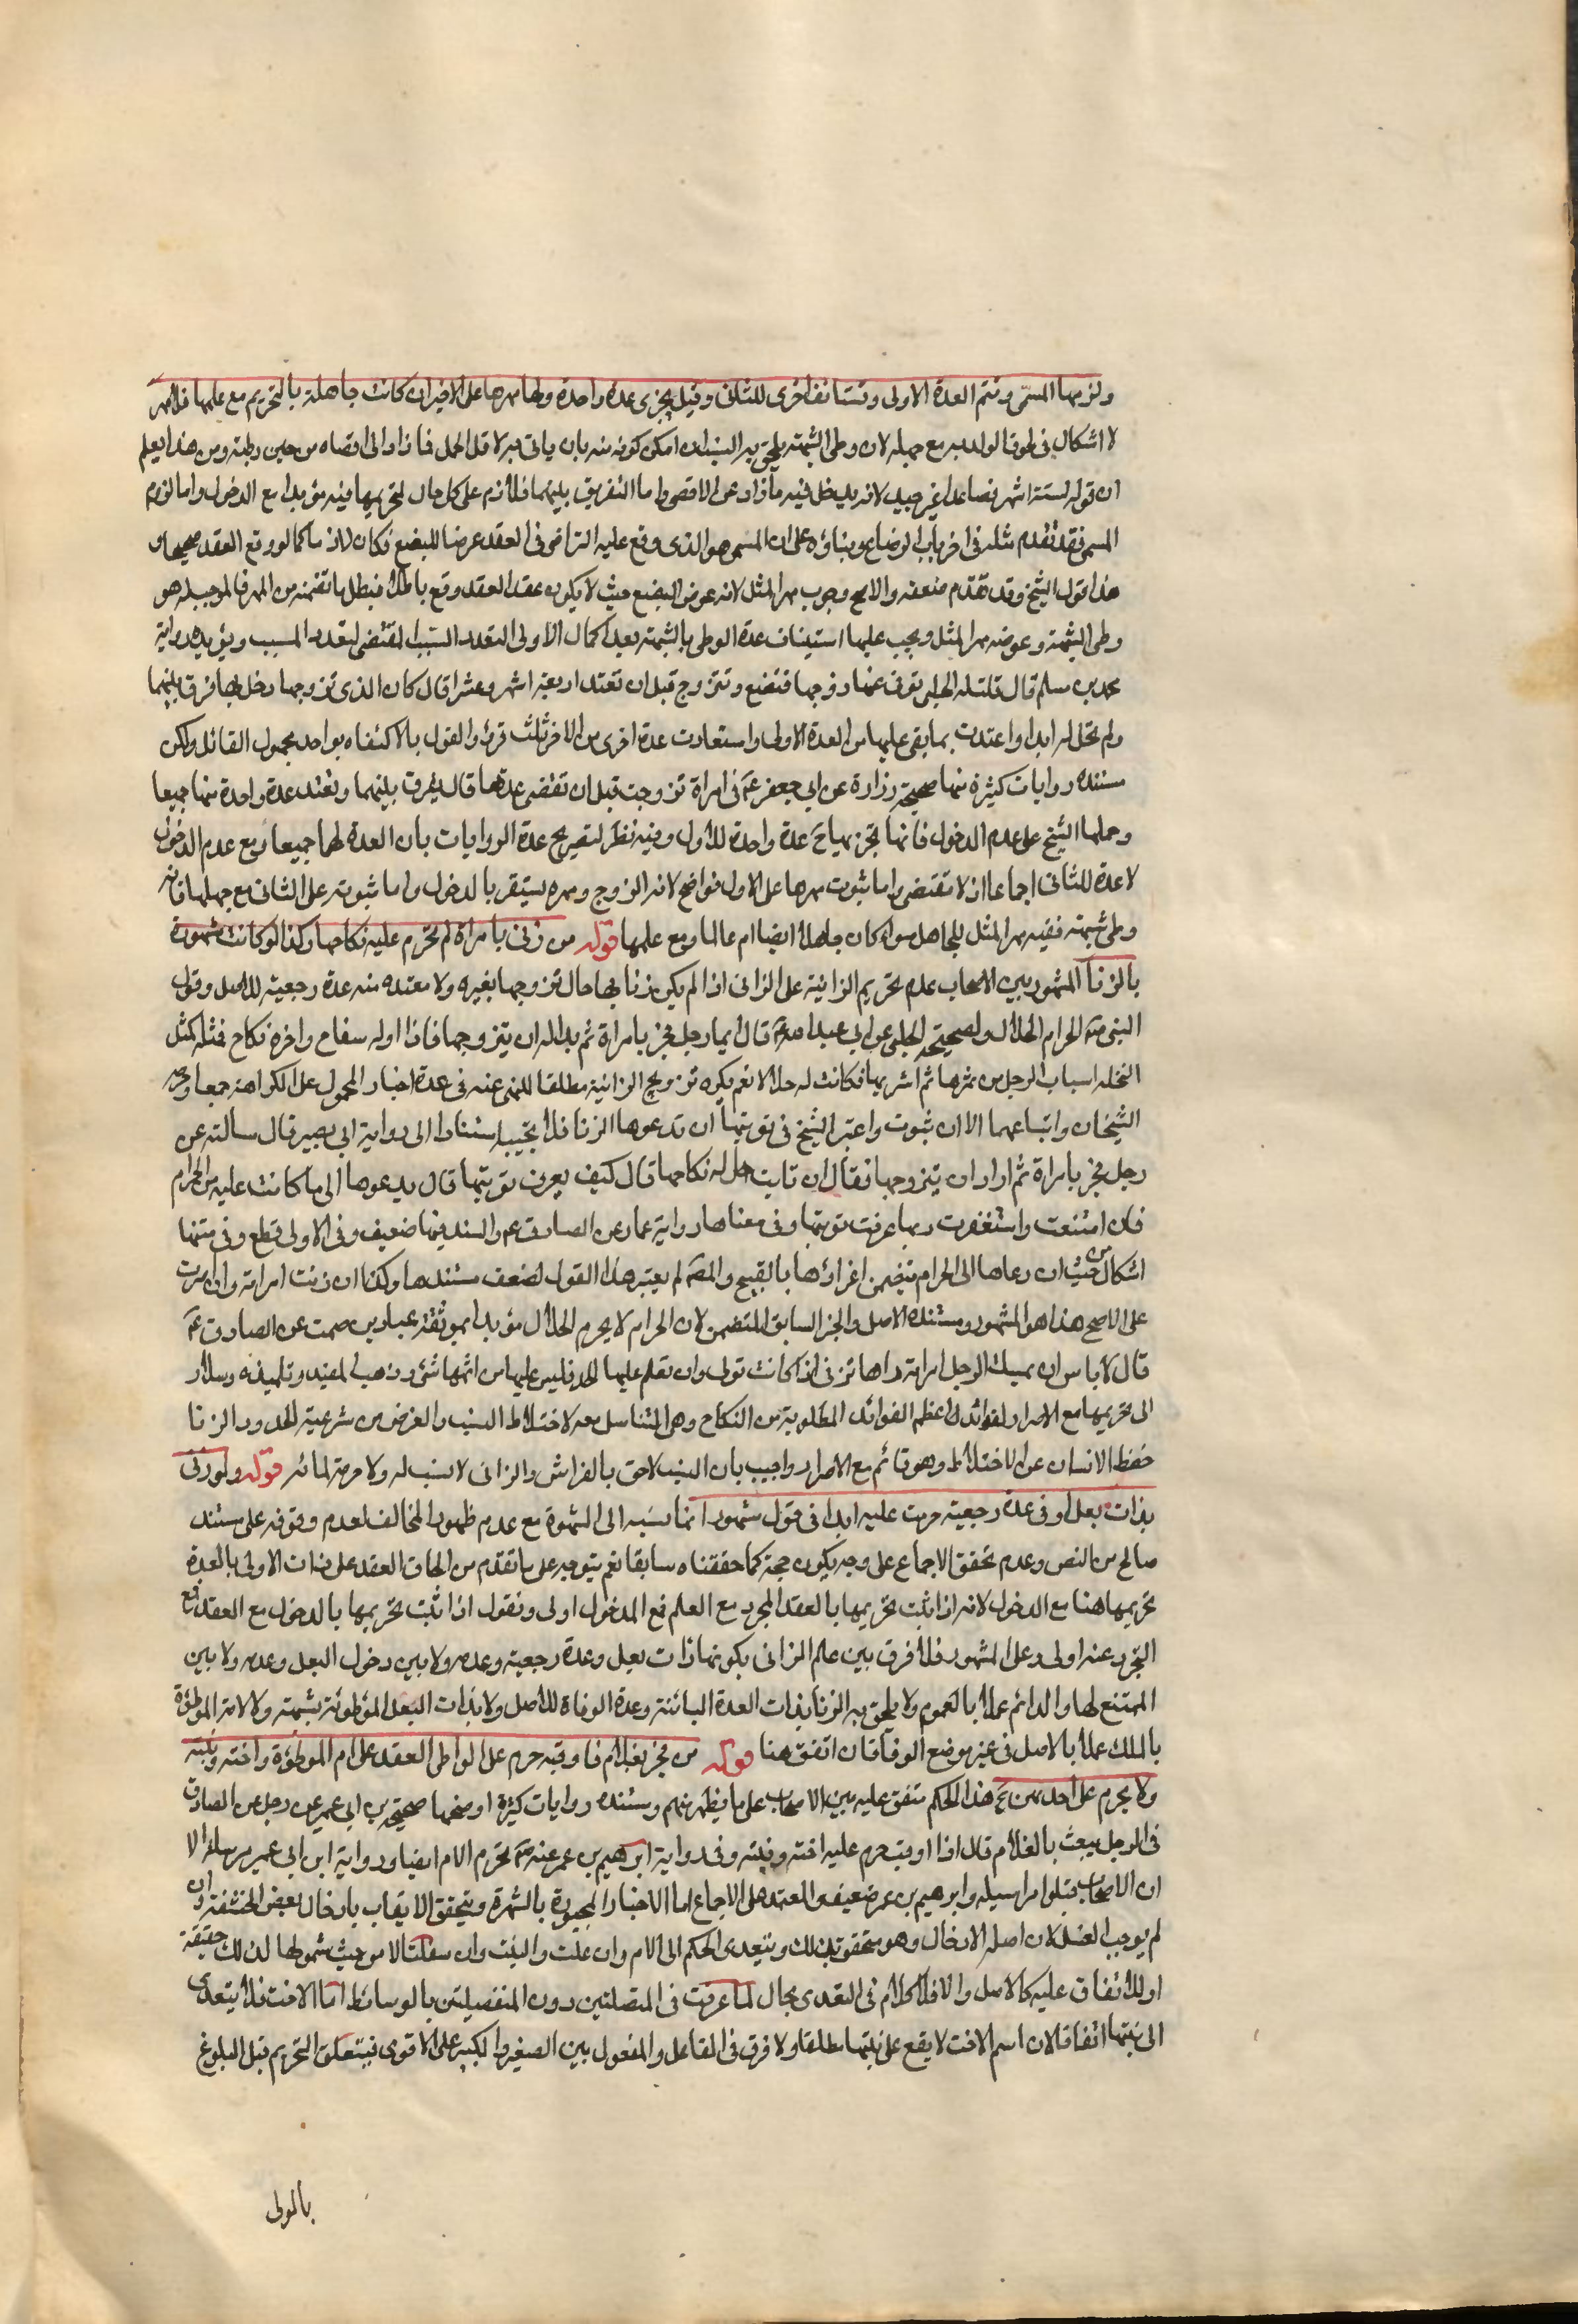 ولزمها المسمى وتتم العدة الاولى وتستانف اخرى للثانى وقيل يجزى عدة واحدة ولها مهرها على الاخير ان كانت جاهلة بالتحريم مع علمها فلا مهر
لا اشكال فى لحوق الولد به مع جهله لان وطى الشبهة يلحق به النسب ان امكن كونه منه بان ياتى به لاقل الحمل فما زاد الى اقصاه من حين وطئه ومن هنا يعلم
ان قوله لستة اشهر فصاعدا غير جيد لانه يدخل فيه ما زاد عن الاقصى واما التفريق بينهما فلازم على كل حال لتحريمها فيه مؤبدا مع الدخول واما لزوم
المسمى فقد تقدم مثله فى اخر باب الرضاع وبناؤه على ان المسمى هو الذى وقع عليه التراضى فى العقد عوضا للبضع فكان لازما كما لو وقع العقد صحيحا و
هذا قول الشيخ وقد تقدم ضعفه والاصح وجوب مهر المثل لانه عوض البضع حيث لا يكون عقد العقد وقع باطلا فبطل ما تضمنه من المهر فالموجب له هو
وطى الشبهة وعوضه مهر المثل ويجب عليها استيناف عدة الوطى بالشبهة بعد اكمال الاولى لتعدد السبب المقتضى لتعدد المسبب ويؤيده رواية
محمد بن مسلم قال قلت له الحبلى يتوفى عنها زوجها فتضع وتتزوج قبل ان تعتد اربعة اشهر وعشرا قال كان الذى تزوجها دخل بها فرق بينهما
ولم تحل له ابدا واعتدت بما بقى عليها من العدة الاولى واستعادت عدة اخرى من الاخر ثلث قروء والقول بالاكتفاء بواحدة مجهول القائل ولكن
مستنده روايات كثيرة منها صحيحة زرارة عن ابى جعفر ع فى امراة تزوجت قبل ان تقضى عدتها قال يفرق بينهما وتعتد عدة واحدة منهما جميعا
وحملها الشيخ على عدم الدخول فانها تجزيها ح عدة واحدة للاول وفيه نظر لتصريح عدة الروايات بان العدة لهما جميعا ومع عدم الدخول
لا عدة للثانى اجماعا اذ لا مقتضى واما ثبوت مهرها على الاول فواضح لانه الزوج ومهره يستقر بالدخول واما ثبوته على الثانى مع جهلها فانه
وطى شبهة ففيه مهر المثل للجاهل سواء كان جاهلا ايضا ام عالما ومع علمها قوله من زنى بامراة لم تحرم عليه نكاحها وكذا لو كانت مشهورة
بالزنا المشهور بين الاصحاب عدم تحريم الزانية على الزانى اذا لم يكن زنا بها حال تزوجها بغيره ولا معتدة منه عدة رجعية للاصل وقول
النبى ص الحرام الحلال ولصحيحة الحلبى عن ابى عبد الله ع قال ايما رجل فجر بامراة ثم بدا له ان يتزوجها فاذا اوله سفاح واخره نكاح فمثله كمثل
النخلة اصاب الرجل من ثمرها ثم اشتريها فكانت له حلالا نعم يكره تزويج الزانية مطلقا للنهى عنه فى عدة اخبار المحمول على الكراهة جمعا وحرمه
الشيخان واتباعهما الا ان تتوب واعتبر الشيخ فى توبتها ان تدعوها الزنا فلا تجيبه استنادا الى رواية ابى بصير قال سالته عن
رجل فجر بامراة ثم اراد ان يتزوجها فقال ان تابت حل له نكاحها قال كيف يعرف توبتها قال يدعوها الى ما كانت عليه من الحرام
فان امتنعت واستغفرت ربها عرفت توبتها وفى معناها رواية عمار عن الصادق ع والسند فيهما ضعيف وفى الاولى قطع وفى متنها
اشكال من حيث ان دعاها الى الحرام يتضمن اغراءها بالقبيح والمص لم يعتبر هذا القول لضعف مستندها وكذا ان زنت امراته وان اصرت
على الاصح هذا هو المشهور ومستنده الاصل والخبر السابق المتضمن لان الحرام لا يحرم الحلال مؤيدا بموثقة عباد بن صهيب عن الصادق ع
قال لا باس ان يمسك الرجل امراته راها تزنى اذا كانت تولى وان تقام عليها الحد فليس عليها من اثمها شئ وذهب المفيد وتلميذه وسلار
الى تحريمها مع الاصرار لفوائد اعظم الفوائد المطلوبة من النكاح وهى التناسل معه لاختلاط النسب والغرض من شرعية الحدود الزنا
حفظ الانسان عن الاختلاط وهو قائم مع الاصرار واجيب بان النسب لاحق بالفراش والزانى لا نسب له ولا حرمة لمائه قوله ولو زنى
بذات بعل او فى عدة رجعية حرمت عليه ابدا فى قول مشهور انما نسبه الى الشهرة مع عدم ظهور المخالف لعدم وقوفه على مستند
صالح من النص وعدم تحقق الاجماع على وجه يكون حجة كما حققناه سابقا نعم يتوجه على ما تقدم من الحاق العقد على ذات الاولى بالعدة
تحريمها هنا مع الدخول لانه اذا ثبت تحريمها بالعقد المجرد مع العلم فمع الدخول اولى ونقول اذا ثبت تحريمها بالدخول مع العقد فمع
التجرد عنه اولى وعلى المشهور فلا فرق بين علم الزانى بكونها ذات بعل وعدة رجعية وعدمه ولا بين دخول البعل وعدمه ولا بين
المتمتع بها والدائم عملا بالعموم ولا يلحق به الزنا بذات العدة البائنة وعدة الوفاة للاصل ولا بذات البعل الموطوئة بشبهة ولا الامة الموطوءة
بالملك عملا بالاصل فى غير موضع الوفاق ان اتفق هنا قوله من فجر بغلام فاوقبه حرم على الواطى العقد على ام الموطوءة واخته وبنته
ولا يحرم على احدهن ع هذا الحكم متفق عليه بين الاصحاب على ما يظهر منهم ومستنده روايات كثيرة اوضحها صحيحة بن ابى عمير عن رجل عن الصادق
فى الرجل يعبث بالغلام قال اذا اوقب حرم عليه اخته وبنته وفى رواية ابرهيم بن عمر عنه ع تحرم الام ايضا ورواية ابن ابى عمير مرسلة الا
ان الاصحاب قبلوا مراسيله وابرهيم بن عمر ضعيف والمعتمد على الاجماع اما الاخبار المجبورة بالشهرة ويتحقق الايقاب بادخال بعض الحشفة وان
لم يوجب الغسل لان اصله الادخال وهو متحقق بذلك ويتعدى الحكم الى الام وان علت والبنت وان سفلت الا من حيث شمولها لذلك حقيقة
او للاتفاق عليه كالاصل والا فللكلام فى التعدى مجال لما عرفت فى المتصلتين دون المنفصلتين بالوسائط اما الاخت فلا يتعدى
الى بنتها اتفاقا لان اسم الاخت لا يقع على بنتها مطلقا ولا فرق فى الفاعل والمفعول بين الصغير والكبير على الاقوى فيتعلق التحريم قبل البلوغ
بالولى